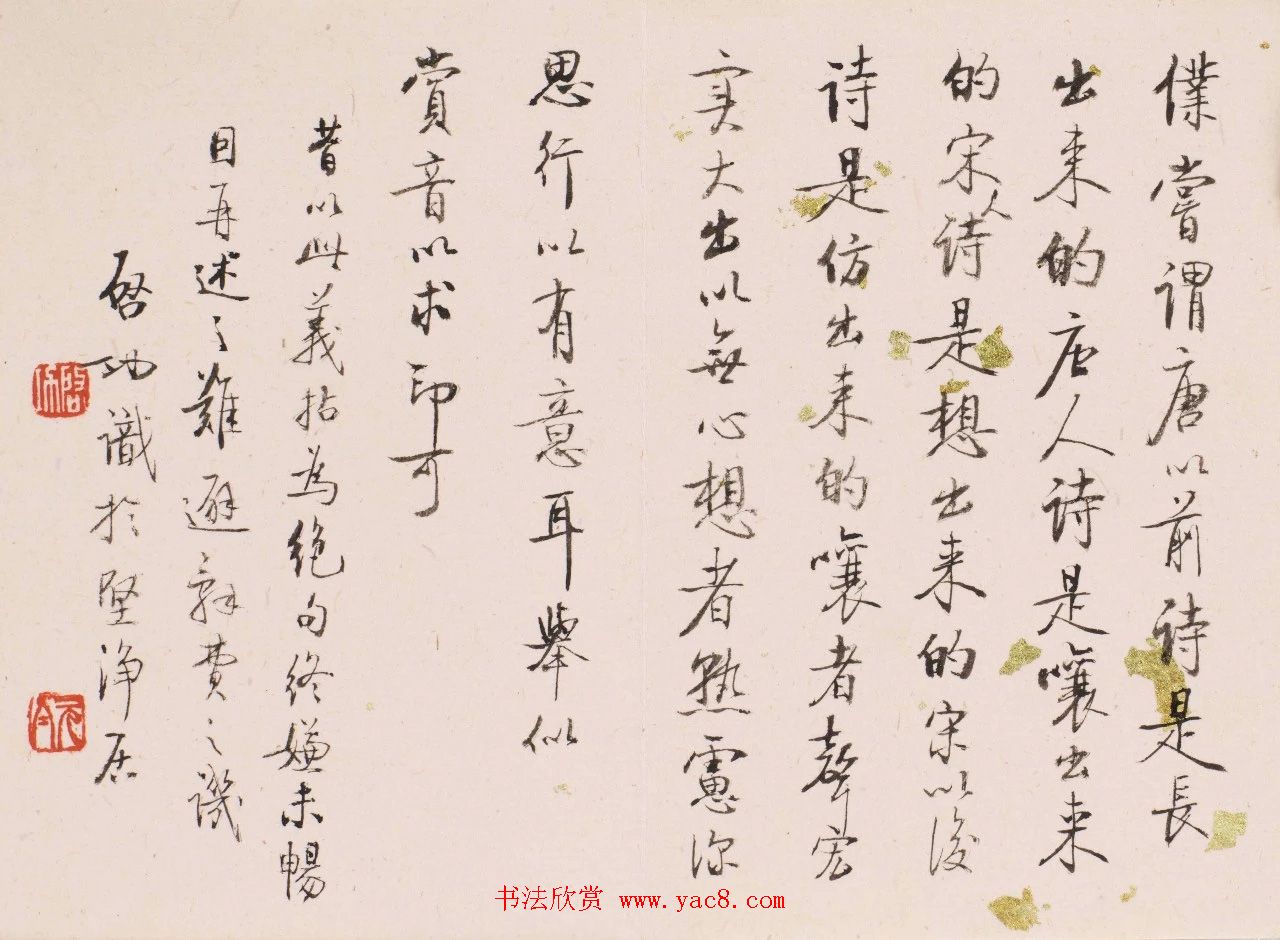 僕嘗謂唐以前詩是長
出来的唐人詩是嚷出来
的宋人詩是想出来的宋以後
詩是仿出来的嚷者聲宏
实大出以無心想者熟慮深
思行以有意耳舉似
賞音以求印可
昔以此義拈為絶句終嫌未暢
因再述之難避辭費之譏
啓功識於堅净居
啓功
元白
书法欣赏 www.yac8.com